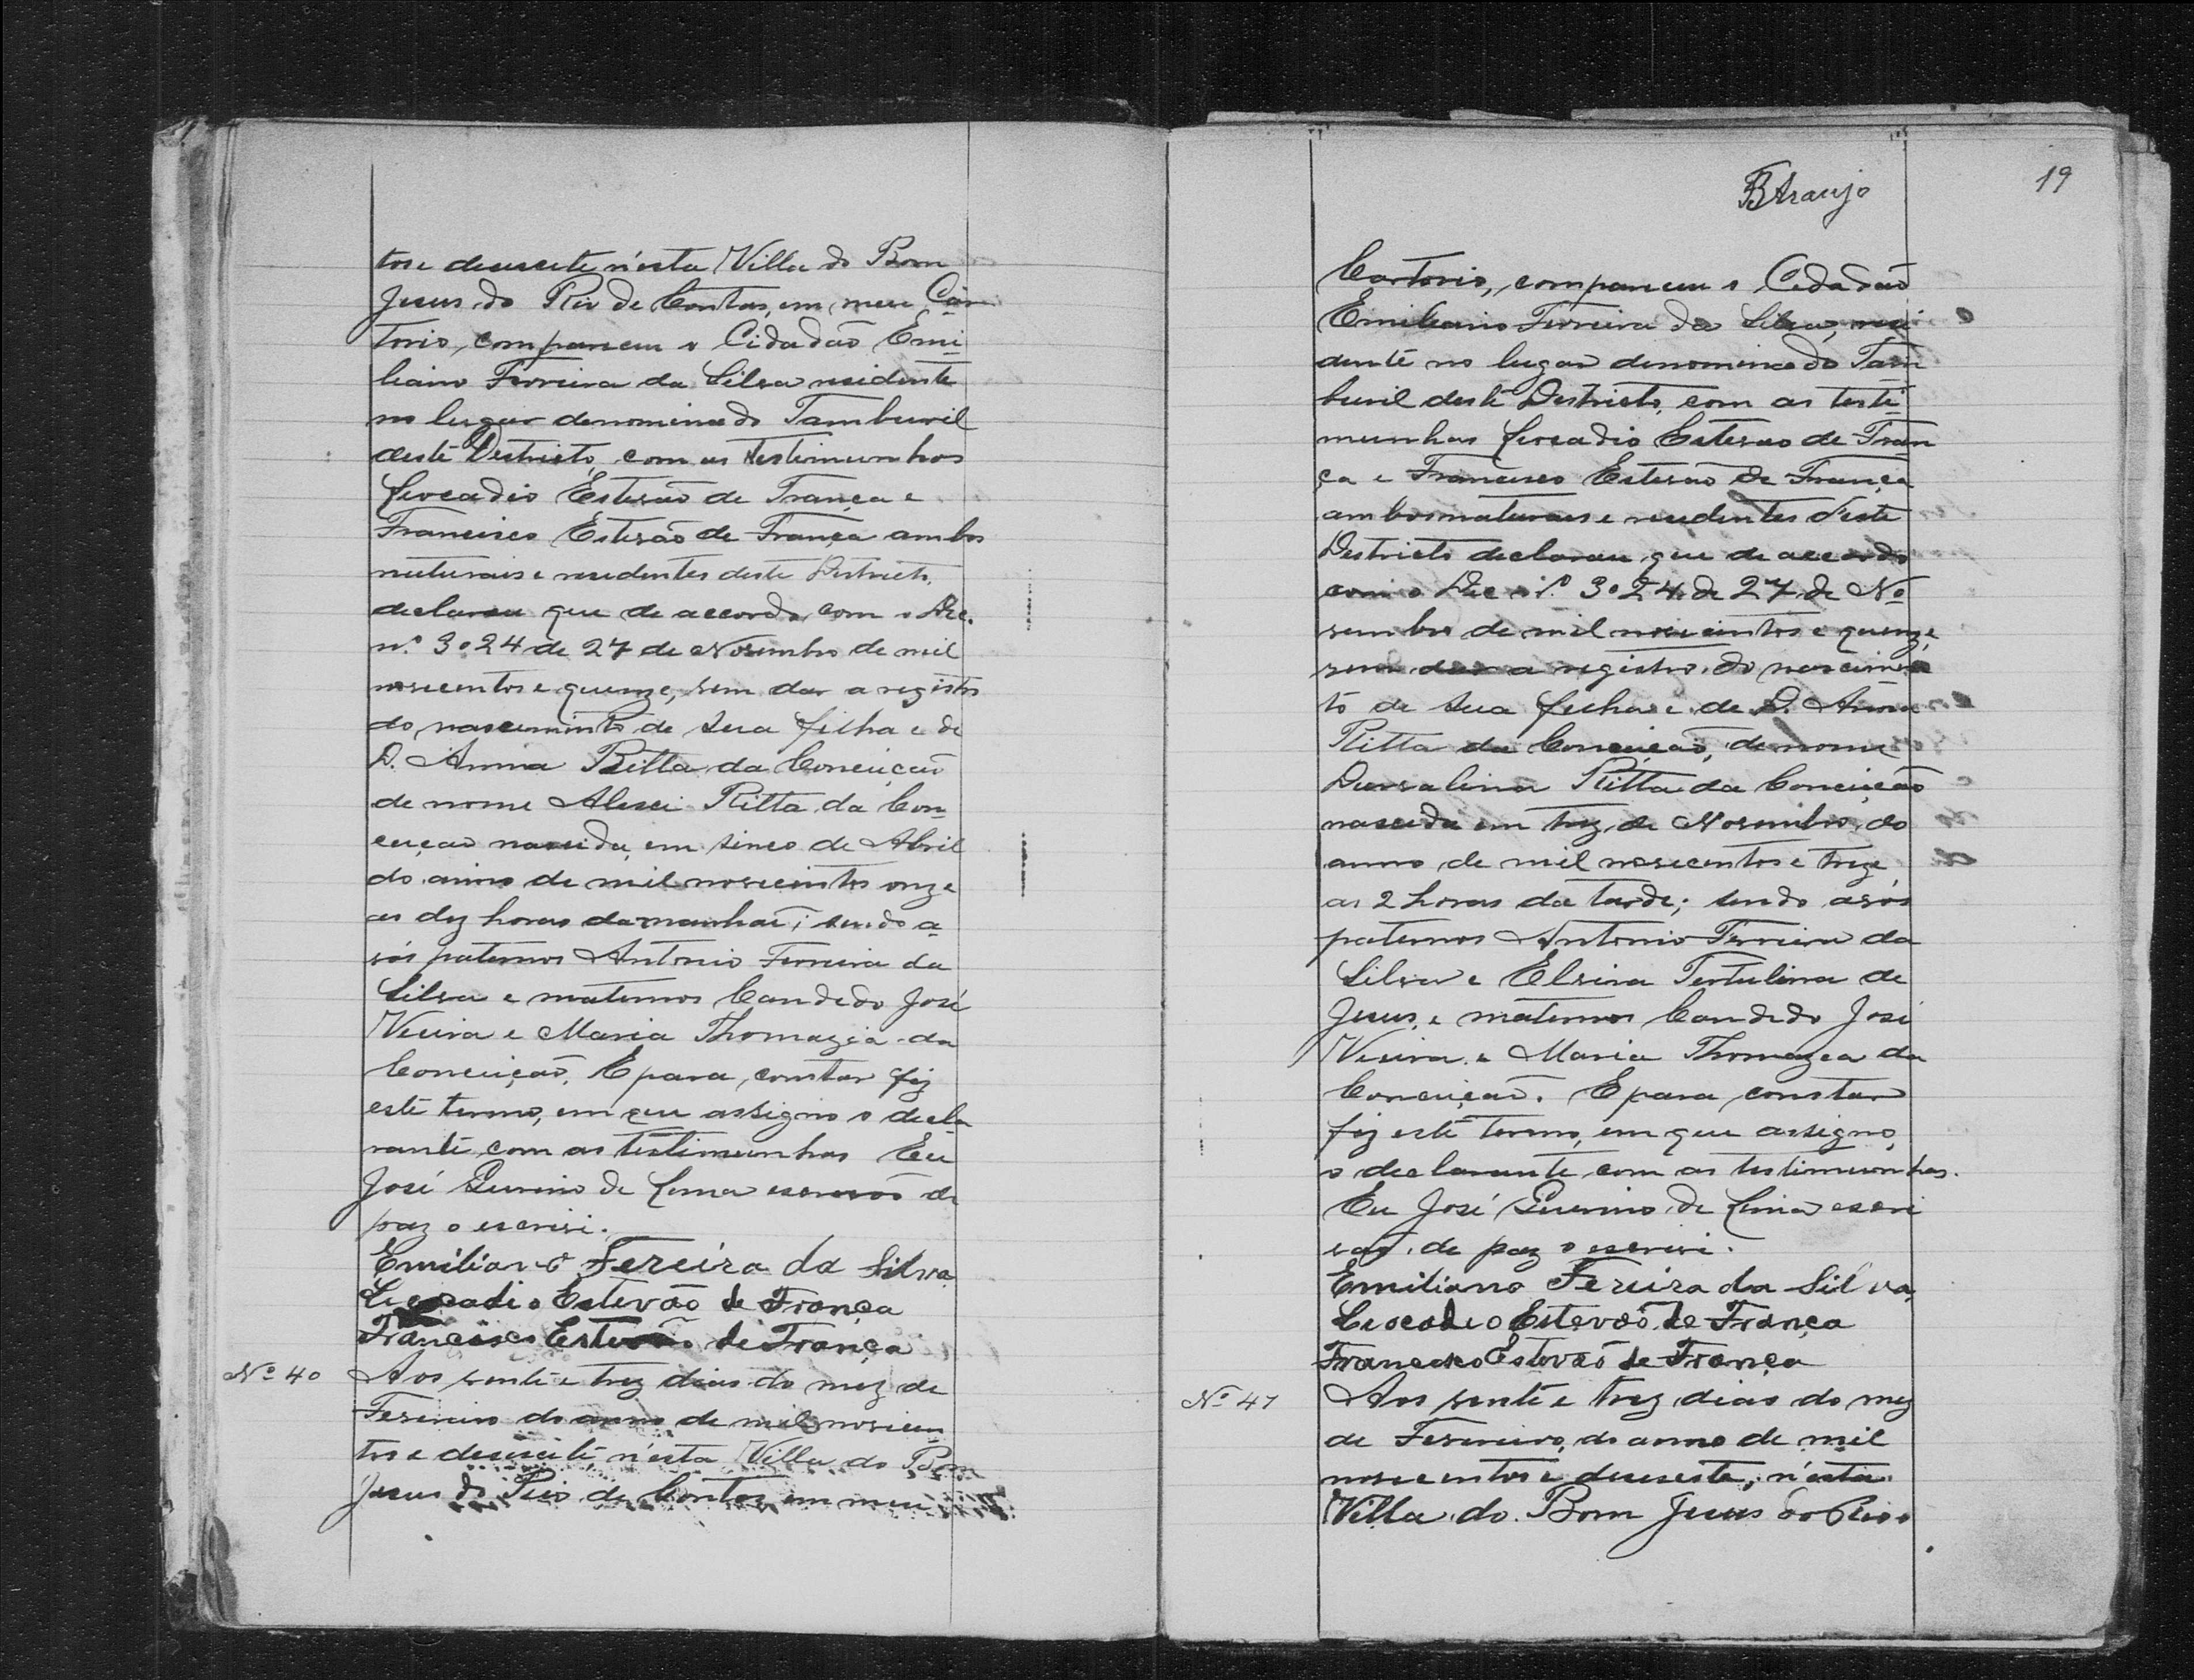 tos e desesete n'esta Villa do Bom
Jesus do Rio de Contas, em meu Car
torio, compareceu o Cidadão Emi
liano Ferreira da Silva residente
no lugar denominado Tamburil
deste Districto, com as testimunhas
Leocadio Estevão de França e
Francisco Estevão de França ambos
naturais e residentes deste Districto,
declarou que de accordo com o Dec.
n.º 3024 de 27 de Novembro de mil
novecentos e quinze, vem dar a registro
do nascimento de sua filha e de
D. Anna Ritta da Conceição
de nome Ritta da Con
ceição nascida em sinco de Abril
do anno de mil novecentos onze
as dez horas da manhaã; sendo a
vós paternos Antonio Ferreira da
Silva e maternos Candido José
Vieira e Maria Thomazia da
Conceição. E para constar fiz
este termo, em que assigno o decla
rante com as testimunhas Eu
José de Lima escrivão de
paz o escrivi.
Emiliano Fereira da Silva
Leocadio Estevão de França
Francisco Estevão de França
Nº 40
Aos vente e trez dias do mez de
Fevereiro do anno de mil novicen
tos e desesete, n'esta Villa do Bom
Jesus do Rio de Contas, em meu
BAraujo
19
Cartorio, compareceu o Cidadão
Emiliano Ferreira da Silva, resi
dente no lugar denominado Tam
buril deste Districto, com as testi
munhas Leocadio Estevao de Fran
ça e Francisco Estevão de França
ambos naturais e residentes d'este
Districto declarou que de accordo
com o Dec nº 3024 de 27 de No
vembro de mil novecintos e quinze,
vem dar a registro do nascimen
to de sua filha e de D. Anna
Ritta da Conceição, de nome
Durvalina Ritta da Conceição
nascida em trez de Novembro do
anno de mil novecentos e treze
as 2 horas da tarde; sendo avós
paternos Antonio Ferreira da
Silva e Elvira Tertulina de
Jesus, e maternos Candido José
Vieira e Maria Thomazea da
Conceição. E para constar
fiz este termo, em que assigno,
o declarante com as testimunhas.
Eu José de Lima escri
vao de paz o escrevi.
Emiliano Fereira da Silva,
Leocadio Estevão de França
Francisco Estevão de França
Nº 41
Aos vente e trez dias do mez
de Fevereiro, do anno de mil
novecentos e desesete, n'esta
Villa do Bom Jesus do Rio